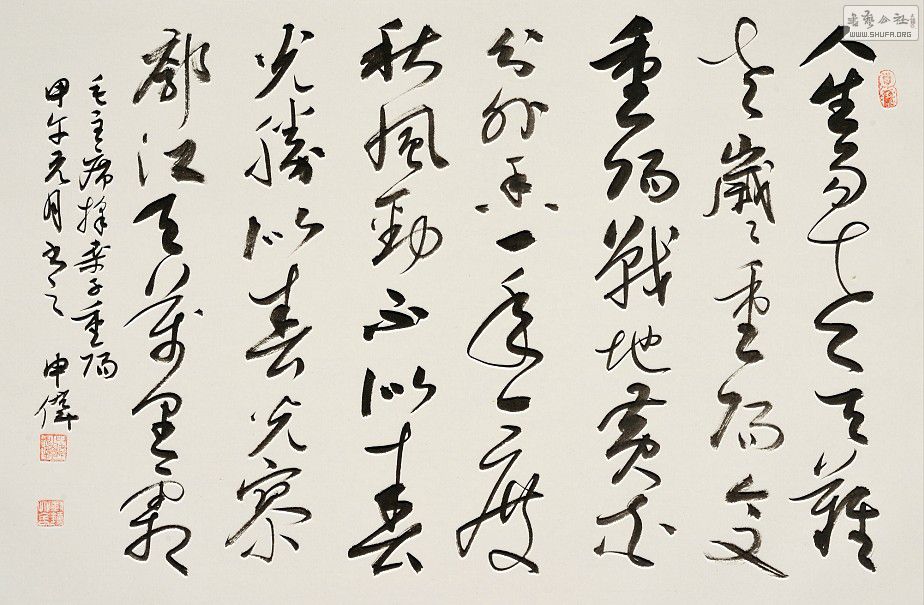 人生易老天難
老歲々重陽今又
重陽戰地黃花
分外香一年一度
秋風勁不似春
光勝似春光寥
廓江天萬里霜
毛主席採桑子重陽
甲午元月書之 申偉
書藝公社
WWW.SHUFA.ORG